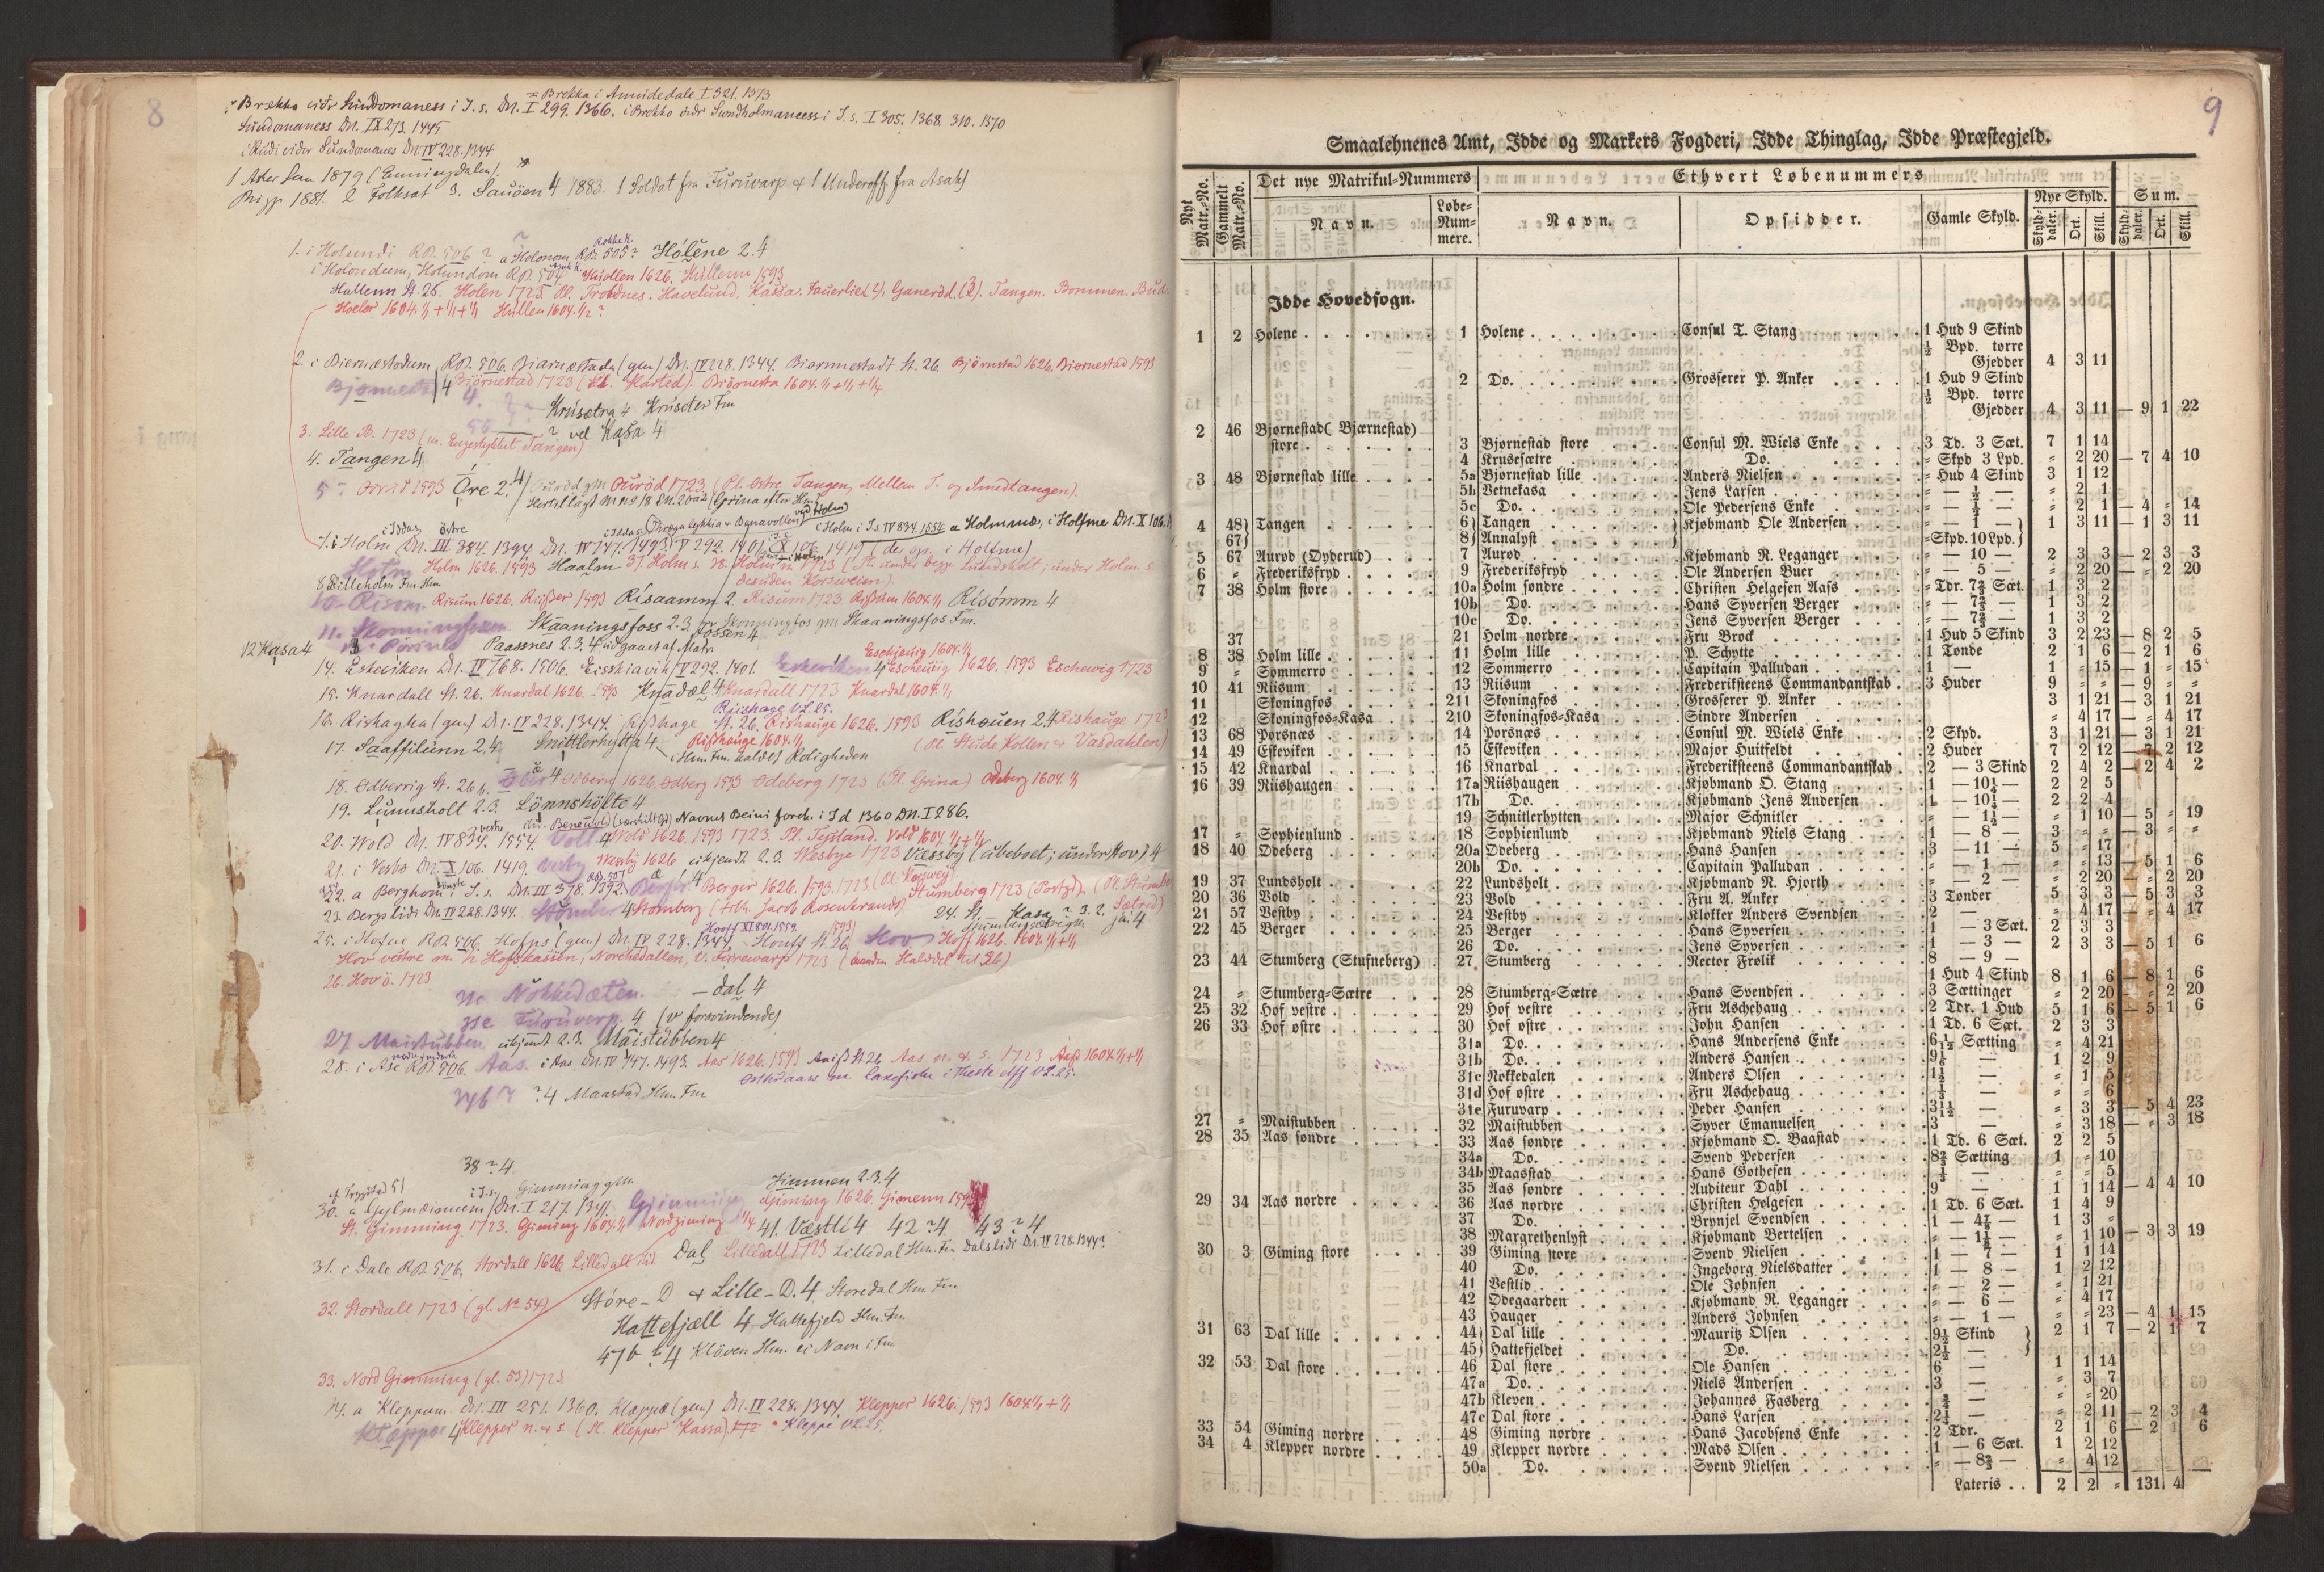 8
= Brekka i Amudedale I 321. 1373
Brækko viðr Sundomaness i J. s. DN. I 299. 1366. i Brekko viðr Sundholmanesse i J. s. I 305. 1368. 310. 1370
Sundomaness DN. IX 273. 1445
i Rudi viðr Sundomanes DN IV 228. 1344
Prgpr 1881. 2 Folksat 3. Sauöen 4 1883. 1 Soldat fra Furuvarp & 1 Underoff. fra Asak
1. i Holundi RB. 506 ? a Holonom RB. 505? Hólene 2.4
i Holondum, Holundom RB. 504 Huollen 1626. Hullenn 1593
Hullenn St. 26. Holen 1723
Hoeler 1604. 1/1 + 1/1 + 1/1 Hullen 1604. 1/2 ?
2. i Biernæstodum RB. 506. Biarnæstada (gen) DN. IV 228. 1344. Biornnestadt St. 26. Bjömstad 1626. Biornestad 1593
4 Björnestad 1723
Krusætra 4 Kruseter Fm
? vel Kasa 4
3. Lille B. 1723 (m. Engestykket Tangen)
4. Tangen 4
5. 1593 Öre 2. 4 Ouröd 1723 (Pl. Østre Tangen, Mellem T. og Smedtangen).
7. i Holm DN. III 384. 1394. DN. IV 747. 1493. V 292. 1401. X 106. 1419
Holm Holm 1626. 1593 Haalm
8 Lilleholm Fm. Hm
10. Risom. Risum 1626. Risser 1593 Risaamm 2. Risum 1723. Rissum 1604. 1/1 Risómm 4
11. Skonningfossen. Skaaningsfoss 2.3
12 Kasa 4 Paassnes 2.3.4 udgaaet af Matr.
Eschiewig 1604. 1/1
14. Eskeviken DN. IV 768. 1506. Eisskiavik V 292. 1401. Eskeviken 4 Eschewiig 1626. 1593 Eschewig 1723
15. Knardall St. 26. Knardal 1626. 1593 Knadæl 4 Knardall 1723 Knardal 1604. 1/1
Riishage VL 25.
16. Rishagha (gen) DN. IV 228. 1344. Risshage St. 26. Rishauge 1626. 1593 Rishouen 2.4 Rishauge 1723
17. Saaffilunn 2.4 Snittlerhytta 4 Risshauge 1604. 1/1
i Hm. Fm. kaldet Roligheden
18. Odberrig St. 26. Odberg 1593 Odeberg 1723 (Pl. Grina) Odeberg 1604. 1/1
19. Lunnsholt 2.3. Lönnshölte 4
20. Wold DN. IV 834. 1554. Voll 4 Wold 1626. 1593 1723. Pl. Tyssland. Vold 1604. 1/1 + 1/4
21. i Vestby DN. X 106. 1419. Vesby Wesby 1626 ukjendt 2.3. Wesbye 1723 Væssby (ubeboet; under Hov) 4
22. a Berghom i J. s. DN. III 378. 1392. Berger 1626. 1593. 1723 (Pl. Korsvey)
23. Bergs lidi DN. IV 228. 1344. Stömber 4 Stomberg Stumberg 1723
24. St. - Kasa ? 3. 2.
25. i Hofue RB. 506. Hofps (gen) DN. IV 228. 1344. Houff St. 26 Hov Hoff 1626. 1604. 1/1 + 1/1
26. Hov ö. 1723
31c Nökkedæten. - dal 4
31e Furuverp. 4 (v forsvindende)
27 Maistubben ukjendt 2.3. Maistubben 4
28. i Ase RB. 506. Aas. i Aas DN. IV 747. 1493. Aas 1626. 1593 Aas n. & s. 1723 Aass 1604. 1/1 + 1/1
34b ? ? 4 Maastad Hm. Fm
38 ? 4
Jimmen 2.3.4
30. a Gylmæisineme DN. I 217. 1341. Gimming Giming 1626. Gimenn 1593
St. Gimming 1723. Giming 1604. 1/1 Nordgiming 1/4 41. Væstli 4 42 ? 4 43 ? 4
31. i Dale RB. 506. Stordall 1626. Lilledall ibd. Dal Lilledall 1723 Lilledal Hm. Fm Dalslidi DN. IV 228. 1344?
32. Stordall 1723 (gl. No 54) Störe - D & Lille - D. 4 Storedal Hm Fm
Hattefjæll 4 Hattefjeld Hm. Fm.
47b ? 4 Klöven Hm. ei Navn i Fm
33. Nord Gimming (gl. 53) 1723.
34. a Kleppum DN. III 251. 1360. Klæppæ (gen) DN. IV 228. 1344. Klepper 1626. 1593 1604 1/1 + 1/1
Klæpper 4 Klepper n. & s. (Pl. Klepper Kassa) Kleppe VL 25.
9
Smaalehnenes Amt, Idde og Markers Fogderi, Idde Thinglag, Idde Præstegjeld.
Nyt Matr.-No. Gammelt Matr.-No. Det nye Matrikul-Nummers Ethvert Løbenummers
Navn. Løbe-Nummere. Navn. Opsidder. Gamle Skyld. Nye Skyld. Sum.
Skylddaler. Ort. Skill. Skylddaler. Ort. Skill.
Idde Hovedsogn.
1 2 Holene 1 Holene Consul T. Stang 1 Hud 9 Skind
½ Bpd. tørre
Gjedder 4 3 11
2 Do. Grosserer P. Anker 1 Hud 9 Skind
½ Bpd. tørre
Gjedder 4 3 11 — 9 1 22
2 46 Bjørnestad (Bjærnestad)
store 3 Bjørnestad store Consul M. Wiels Enke 3 Td. 3 Sæt. 7 1 14
4 Krusesætre Do. " Skpd 3 Lpd. " 2 20 — 7 4 10
3 48 Bjørnestad lille 5a Bjørnestad lille Anders Nielsen " Hud 4 Skind 3 1 12
5b Vetnekasa Jens Larsen " — ½ — " 2 1
5c Do. Ole Pedersens Enke " — ½ — " 2 1 — 4 " 14
4 48} Tangen 6} Tangen Kjøbmand Ole Andersen " — 1 —} 1 3 11 — 1 3 11
67} 8} Annalyst "Skpd. 10 Lpd.}
5 67 Aurød (Dyderud) 7 Aurød Kjøbmand N. Leganger " — 10 — 2 3 3 — 2 3 3
6 " Frederiksfryd 9 Frederiksfryd Ole Andersen Buer " — 5 — " 2 20 — " 2 20
7 38 Holm store 10a Holm søndre Christen Helgesen Aass " Tdr. 7⅔ Sæt. 1 3 2
10b Do. Hans Syversen Berger " — 7⅔ — 1 3 2
10c Do. Jens Syversen Berger " — 7⅔ — 1 3 2
37 21 Holm nordre Fru Brock 1 Hud 5 Skind 3 2 23 — 8 2 5
8 38 Holm lille 11 Holm lille P. Schytte 1 Tønde 2 1 6 — 2 1 6
9 " Sommerro 12 Sommerro Capitain Palludan 1 — 1 " 15 — 1 " 15
10 41 Riisum 13 Riisum Frederiksteens Commandantskab 3 Huder 9 " " — 9 " "
11 Skoningfos 211 Skoningfos Grosserer P. Anker 3 1 21 — 3 1 21
12 Skoningfos-Kasa 210 Skoningfos-Kasa Sindre Andersen " 4 17 — " 4 17
13 68 Porsnæs 14 Porsnæs Consul M. Wiels Enke 2 Skpd. 3 1 21 — 3 1 21
14 49 Eskeviken 15 Eskeviken Major Huitfeldt 2 Huder 7 2 12 — 7 2 12
15 42 Knardal 16 Knardal Frederiksteens Commandantskab 2 — 3 Skind 2 4 2 — 2 4 2
16 39 Riishaugen 17a Riishaugen Kjøbmand O. Stang 1 — 10¼ — 2 2 5
17b Do. Kjøbmand Jens Andersen 1 — 10¼ — 2 2 4
19 Schnitlerhytten Major Schnitler " — 1½ — " 1 10 — 5 " 19
17 " Sophienlund 18 Sophienlund Kjøbmand Niels Stang 1 — 8 — 3 " " — 3 " "
18 40 Odeberg 20a Odeberg Hans Hansen 3 — 11 — 5 " 17
20b Do. Capitain Palludan " — 1 — " " 13 — 5 1 6
19 37 Lundsholt 22 Lundsholt Kjøbmand N. Hjorth " — 2 — " 2 20 — " 2 20
20 36 Vold 23 Vold Fru A. Anker 3 Tønder 5 3 3 — 5 3 3
21 57 Vestby 24 Vestby Klokker Anders Svendsen 2 — " 4 17 — " 4 17
22 45 Berger 25 Berger Hans Syversen 1 — 3 Sæt. 2 3 3
26 Do. Jens Syversen 1 — 3 — 2 3 3 — 5 1 6
23 44 Stumberg (Stufneberg) 27 Stumberg Rector Frolik 8 — 9 —
1 Hud 4 Skind 8 1 6 — 8 1 6
24 " Stumberg-Sætre 28 Stumberg-Sætre Hans Svendsen 3 Sættinger " 2 20 — " 2 20
25 32 Hof vestre 29 Hof vestre Fru Aschehaug 2 Tdr. 1 Hud 5 1 6 — 5 1 6
26 33 Hof østre 30 Hof østre John Hansen 1 Td. 6 Sæt. 2 3 3
31a Do. Hans Andersens Enke 6 1/12 Sætting " 4 21
31b Do. Anders Hansen 9⅙ — 1 2 9
31c Nøkkedalen Anders Olsen 1½ — " 1 5
31d Hof østre Fru Aschehaug ⅓ — " " 6
31e Furuvarp Peder Hansen 3 1/12 — " 3 3 — 5 4 23
27 " Maistubben 32 Maistubben Syver Emanuelsen 3 — " 3 18 — " 3 18
28 35 Aas søndre 33 Aas søndre Kjøbmand O. Baastad 1 Td. 6 Sæt. 2 2 5
34a Do. Svend Pedersen 8⅔ Sætting 1 " 10
34b Maasstad Hans Gothesen ⅓ — " " 5
35 Aas søndre Auditeur Dahl 9 — 1 1 14 — 4 4 10
29 34 Aas nordre 36 Aas nordre Christen Helgesen 1 Td. 6 Sæt. 1 4 9
37 Do. Brynjel Svendsen 1 — 4⅞ — 1 3 "
38 Margrethenlyst Kjøbmand Bertelsen " — 1⅛ — " 1 10 — 3 3 19
30 3 Giming store 39 Giming store Svend Nielsen 1 — 7 — 1 1 14
40 Do. Ingeborg Nielsdatter 1 — 8 — 1 2 12
41 Vestlid Ole Johnsen " — 2 — " 1 21
42 Ødegaarden Kjøbmand N. Leganger " — 6 — " 4 17
43 Hauger Anders Johnsen " — 1 — " " 23 — 4 1 15
31 63 Dal lille 44} Dal lille Mauritz Olsen 9½ Skind } 2 1 7 — 2 1 7
45} Hattefjeldet Do. 2½ — }
32 53 Dal store 46 Dal store Ole Hansen 6 — 1 1 14
47a Do. Niels Andersen 3 — " 3 7
47b Kleven Johannes Fasberg ¾ — " " 20
47c Dal store Hans Larsen 2¼ — " 2 11 — 2 3 4
33 54 Giming nordre 48 Giming nordre Hans Jacobsens Enke 2 Tdr. 2 1 6 — 2 1 6
34 4 Klepper nordre 49 Klepper nordre Mads Olsen 1 — 6 Sæt. 1 2 12
50a Do. Svend Nielsen " — 8⅔ — " 4 12
Lateris 2 2 " 131 4